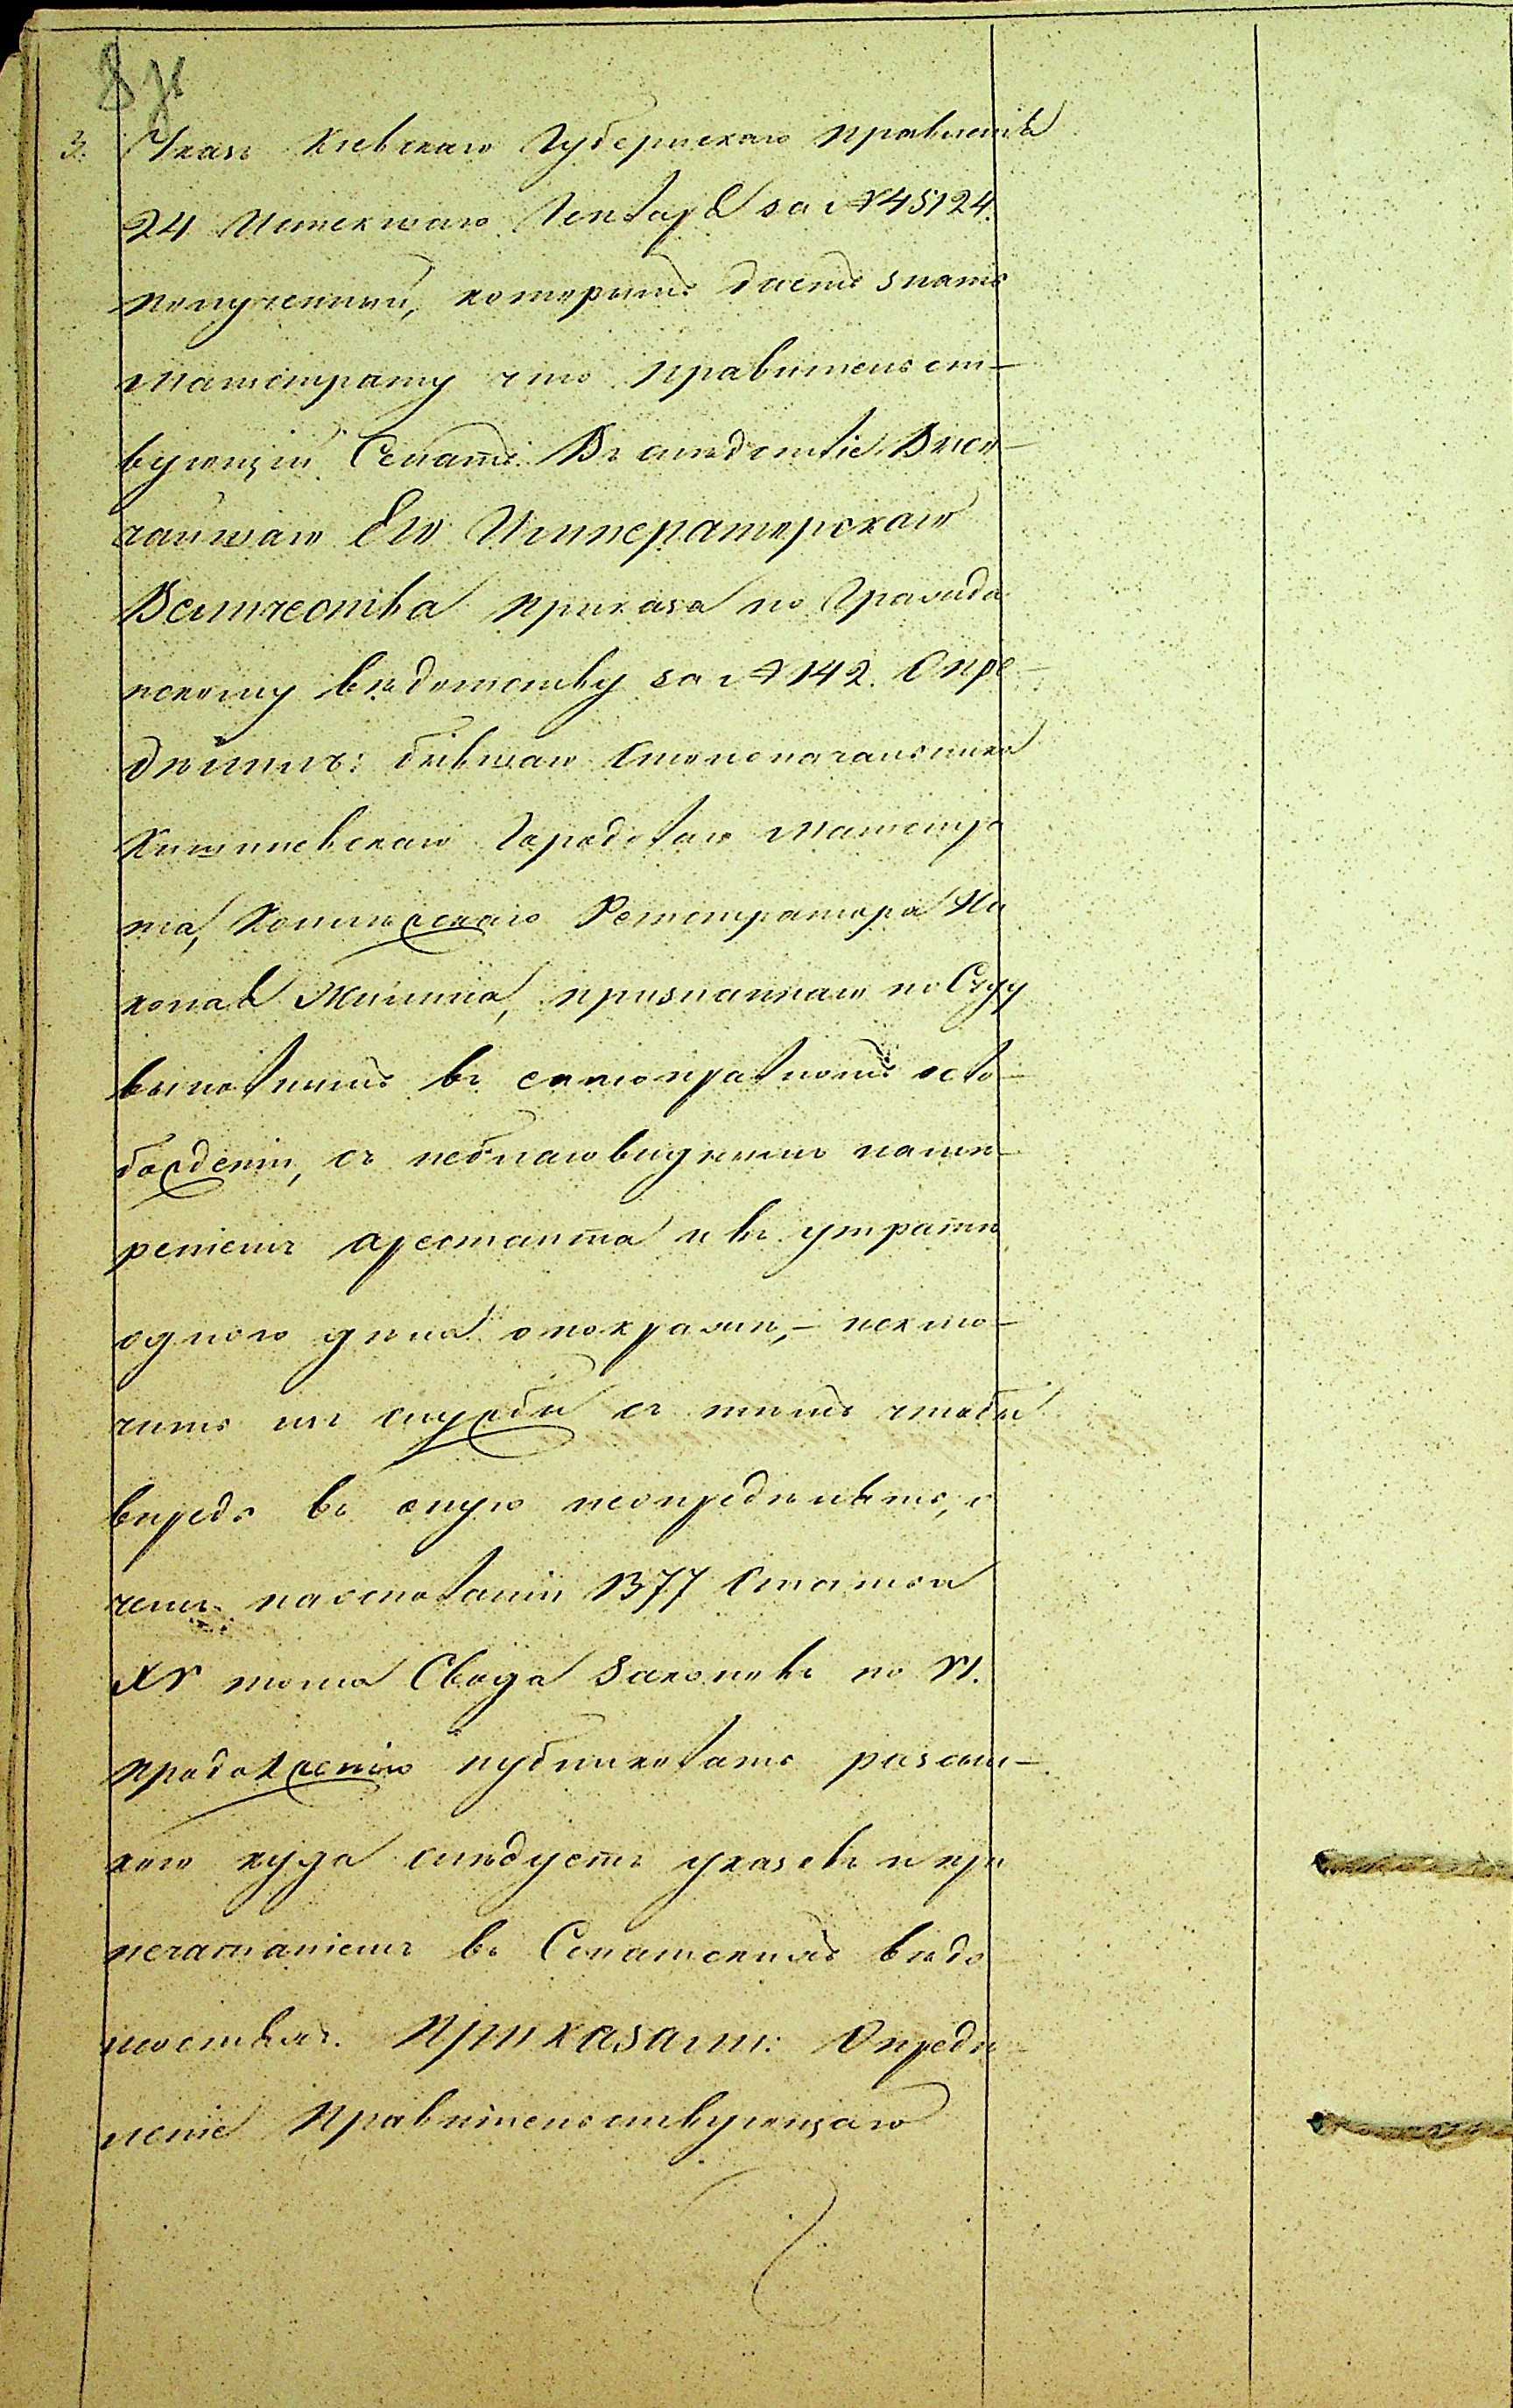 8 зв
3. Указъ Кіевскаго Губернскаго Правленія
24 Истекшаго Генваря за № 45124.
полученный, которымъ даетъ знать
Магистрату что Правительст-
вующій Сенатъ. Въ слѣдствіе Высо-
чайшаго Его Императорскаго
Величества приказа по Граждан
нскому вѣдомству за № 142. Опре-
дѣлилъ: бывшаго Столоначальника
Кишиневскаго Городоваго Магистра
та, Коллежскаго Регистратора Ни
колая, признаннаго по Суду
виновнымъ въ самопратномъ осво-
божденіи, съ неблаговиднымъ намѣ-
реніемъ арестанта и въ утратѣ
одного дѣла о покражѣ,- исклю-
чить изъ службы съ тѣмъ чтобы
впредь въ оную неопредѣлять, о
чемъ на основаніи 1377 Статьи
XV тома Свода Законовъ по VI.
продолженію публиковать разсыл-
кою куда слѣдуетъ указовъ и при
печатаніемъ въ Сенатскихъ вѣдо
мостяхъ. Приказали: Опредѣ-
леніе Правительствующаго